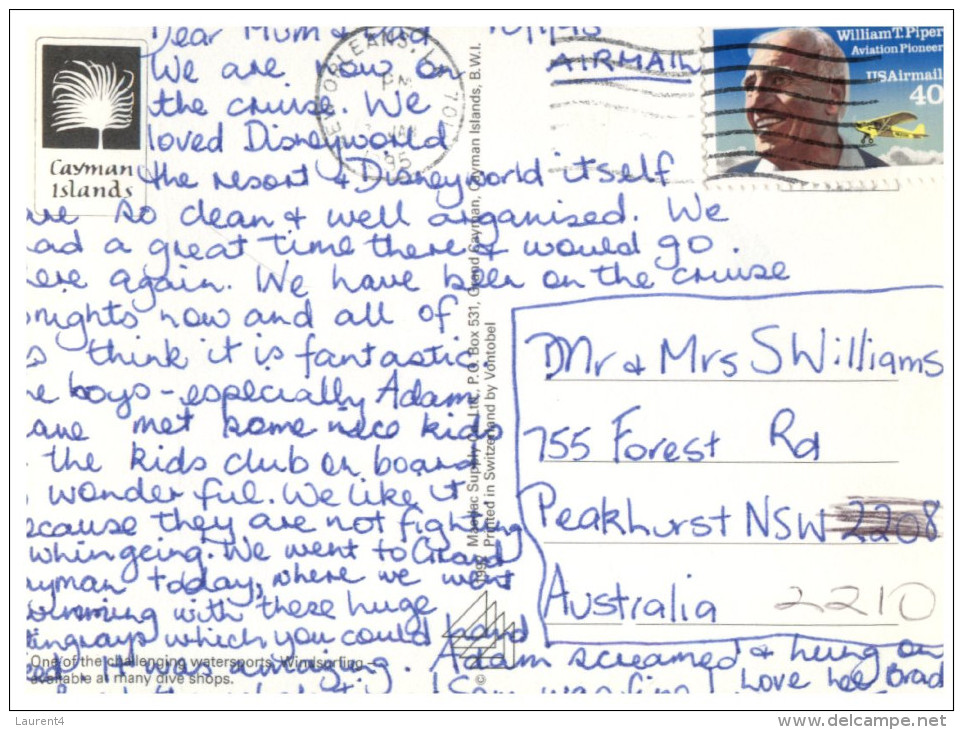 Dear Mum &
AIRMAIL
We are now on
the cruise. We
loved Disneyworld
the resort & Disneyworld itself
so clean & well organised. We
a great time there & would go
again. We have been on the cruise
nights now and all of
think it is fantastic
boys - especially Adam
met some nice kids
the kids club on board
wonderful. We like it
because they are not fighting
whingeing. We went to Grand
Cayman today, where we went
swimming with these huge
stingrays which you could hand
was amazing. Adam screamed & hung on
Sam was fine! Love Lee Brad
Cayman
Islands
ORLEANS, L 701
PM
JAN
95
William T. Piper
Aviation Pioneer
USAirmail
40
Mr & Mrs S Williams
755 Forest Rd
Peakhurst NSW 2208
Australia 2210
P.O. Box 531, Grand Cayman, Cayman Islands, B.W.I.
Printed in Switzerland by Vontobel
©
One of the challenging watersports, Windsurfing -
available at many dive shops.
Laurent4
www.delcampe.net